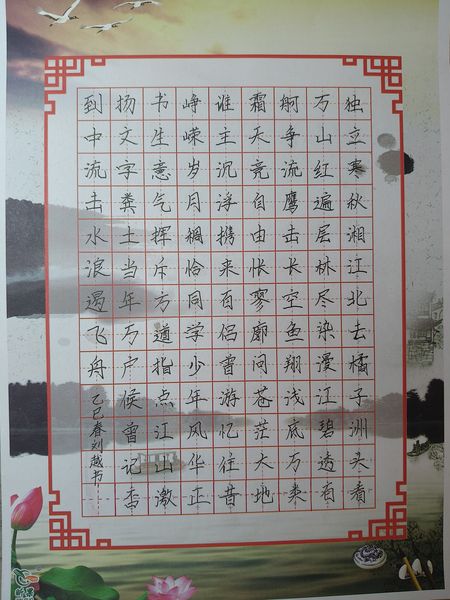 独立寒秋湘江北去橘子洲头看
万山红遍层林尽染漫江碧透有
舸争流鹰击长空鱼翔浅底万类
霜天竞自由怅寥廓问苍茫大地
谁主沉浮携来百侣曾游忆往昔
峥嵘岁月稠恰同学少年风华正
书生意气挥斥方遒指点江山激
扬文字粪土当年万户候曾记否
到中流击水浪遏飞舟
乙巳春刘越书